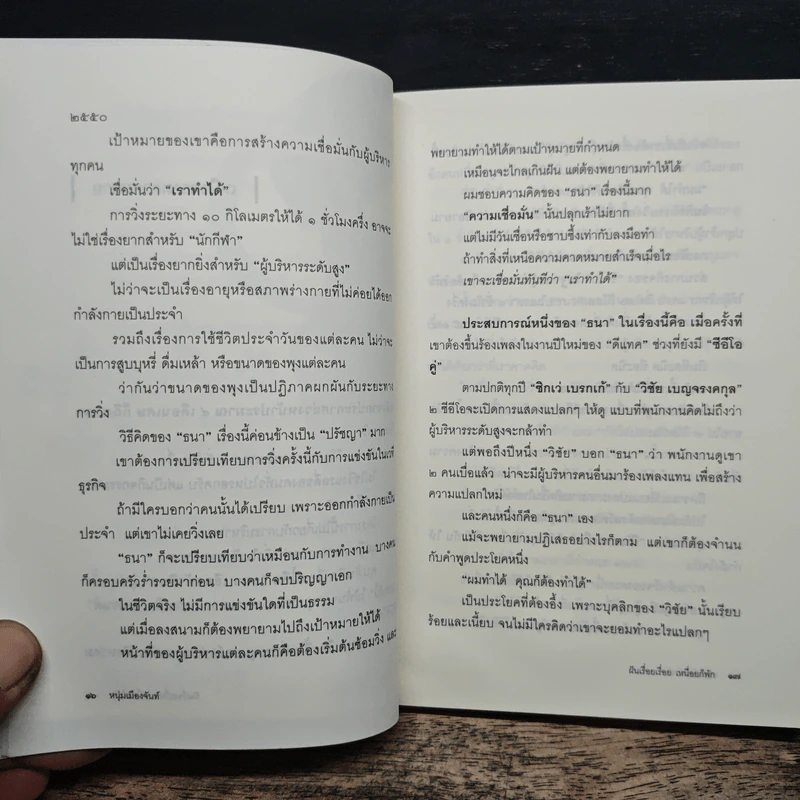 ๒๕๕๐
เป้าหมายของเขาคือการสร้างความเชื่อมั่นกับผู้บริหาร
ทุกคน
เชื่อมั่นว่า “เราทำได้”
การวิ่งระยะทาง ๑๐ กิโลเมตรให้ได้ ๑ ชั่วโมงครึ่ง อาจจะ
ไม่ใช่เรื่องยากสำหรับ “นักกีฬา”
แต่เป็นเรื่องยากยิ่งสำหรับ “ผู้บริหารระดับสูง”
ไม่ว่าจะเป็นเรื่องอายุหรือสภาพร่างกายที่ไม่ค่อยได้ออก
กำลังกายเป็นประจำ
รวมถึงเรื่องการใช้ชีวิตประจำวันของแต่ละคน ไม่ว่าจะ
เป็นการสูบบุหรี่ ดื่มเหล้า หรือขนาดของพุงแต่ละคน
ว่ากันว่าขนาดของพุงเป็นปฏิภาคผกผันกับระยะทาง
การวิ่ง
วิธีคิดของ “ธนา” เรื่องนี้ค่อนข้างเป็น “ปรัชญา” มาก
เขาต้องการเปรียบเทียบการวิ่งครั้งนี้กับการแข่งขันในเวที
ธุรกิจ
ถ้ามีใครบอกว่าคนนั้นได้เปรียบ เพราะออกกำลังกายเป็น
ประจำ แต่เขาไม่เคยวิ่งเลย
“ธนา” ก็จะเปรียบเทียบว่าเหมือนกับการทำงาน บางคน
ก็ครอบครัวร่ำรวยมาก่อน บางคนก็จบปริญญาเอก
ในชีวิตจริง ไม่มีการแข่งขันใดที่เป็นธรรม
แต่เมื่อลงสนามก็ต้องพยายามไปถึงเป้าหมายให้ได้
หน้าที่ของผู้บริหารแต่ละคนก็คือต้องเริ่มต้นซ้อมวิ่ง และ
๑๖ หนุ่มเมืองจันท์
พยายามทำให้ได้ตามเป้าหมายที่กำหนด
เหมือนจะไกลเกินฝัน แต่ต้องพยายามทำให้ได้
ผมชอบความคิดของ “ธนา” เรื่องนี้มาก
“ความเชื่อมั่น” นั้นปลุกเร้าไม่ยาก
แต่ไม่มีวันเชื่อหรือซาบซึ้งเท่ากับลงมือทำ
ถ้าทำสิ่งที่เหนือความคาดหมายสำเร็จเมื่อไร
เขาจะเชื่อมั่นทันทีว่า “เราทำได้”
ประสบการณ์หนึ่งของ “ธนา” ในเรื่องนี้คือ เมื่อครั้งที่
เขาต้องขึ้นร้องเพลงในงานปีใหม่ของ “ดีแทค” ช่วงที่ยังมี “ซีอีโอ
คู่”
ตามปกติทุกปี “ซิกเว่ เบรกเก้” กับ “วิชัย เบญจรงคกุล”
๒ ซีอีโอจะเปิดการแสดงแปลกๆ ให้ดู แบบที่พนักงานคิดไม่ถึงว่า
ผู้บริหารระดับสูงจะกล้าทำ
แต่พอถึงปีหนึ่ง “วิชัย” บอก “ธนา” ว่า พนักงานดูเขา
๒ คนเบื่อแล้ว น่าจะมีผู้บริหารคนอื่นมาร้องเพลงแทน เพื่อสร้าง
ความแปลกใหม่
และคนหนึ่งก็คือ “ธนา” เอง
แม้จะพยายามปฏิเสธอย่างไรก็ตาม แต่เขาก็ต้องจำนน
กับคำพูดประโยคหนึ่ง
“ผมทำได้ คุณก็ต้องทำได้”
เป็นประโยคที่ต้องอึ้ง เพราะบุคลิกของ “วิชัย” นั้นเรียบ
ร้อยและเนี้ยบ จนไม่มีใครคิดว่าเขาจะยอมทำอะไรแปลกๆ
ฝันเรื่อยเรื่อย เหนื่อยก็พัก ๑๗